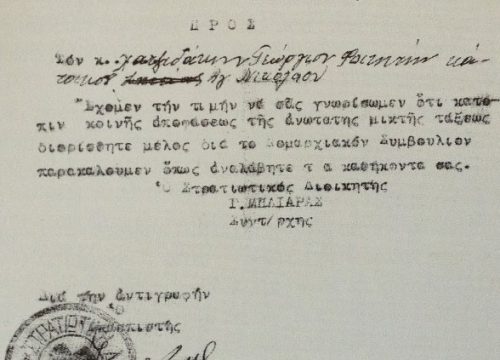 ΠΡΟΣ
Τον κ. Χατζιδάκην Γεώργιον Φοιτητήν κά-
τοικον Αγ Νικόλαον
Ἔχομεν τήν τιμήν νά σᾶς γνωρίσωμεν ὅτι κατο-
πιν κοινῆς ἀποφάσεως τῆς ἀνωτατης μικτῆς τάξεως
διορίσθητε μέλος διά το Νομαρχιακόν Συμβουλιον
παρακαλουμεν ὅπως ἀναλάβητε τ α καθήκοντα σας.
Ὁ Στρατιωτικός Διοικητής
Γ. ΜΠΛΙΑΡΑΣ
Συντ/ρχης
Διά την ἀντιγραφήν
Ο
ΣΤΡΑΤΙΩΤΙΚ